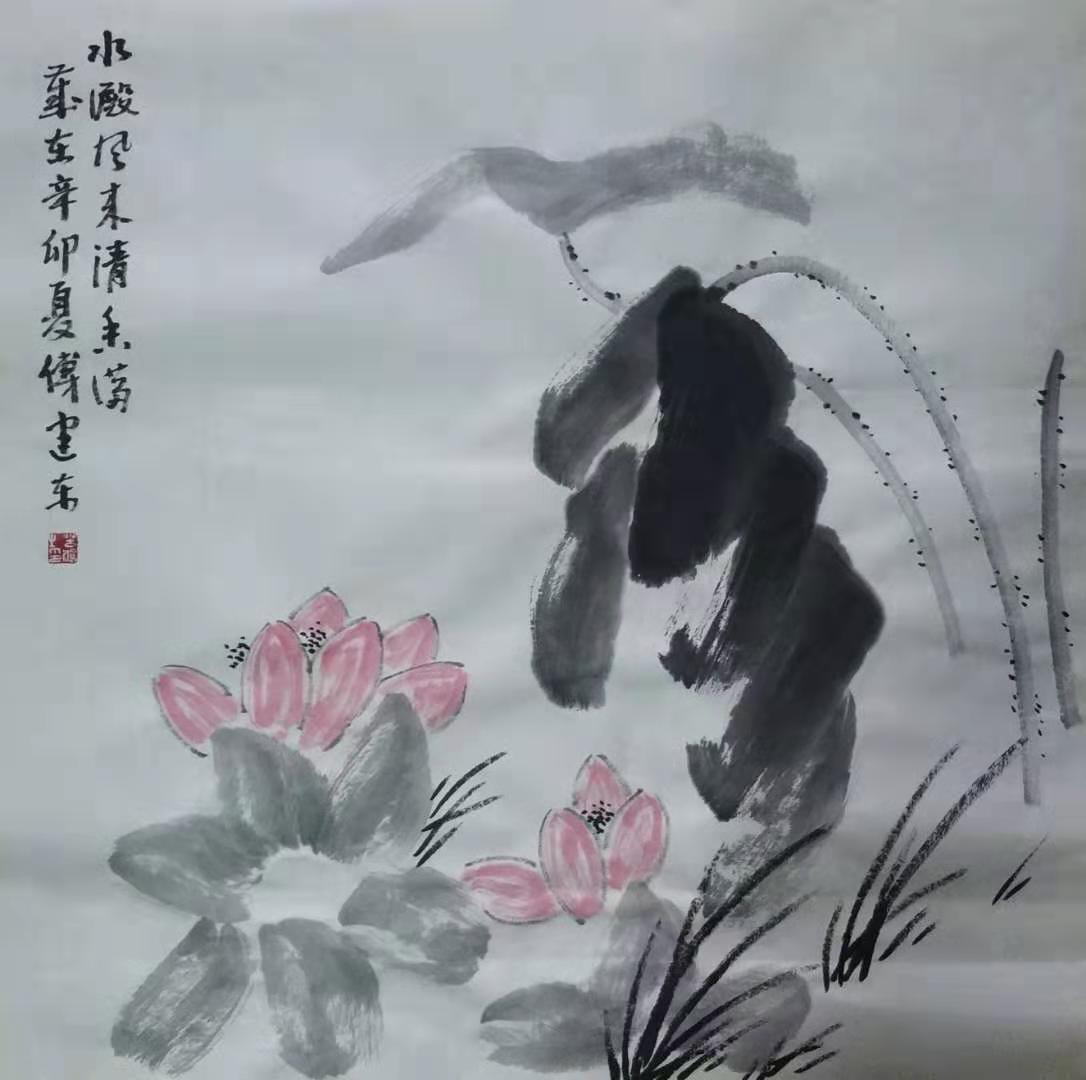 水殿风来清香满
歲在辛卯夏傅建东